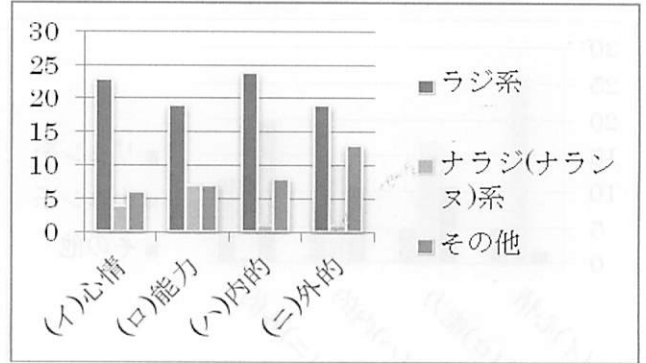 30
25
20
15
10
5
0
(イ)心情
(ロ)能力
(ハ)内的
(ニ)外的
ラジ系
ナラジ(ナラン
ヌ)系
その他